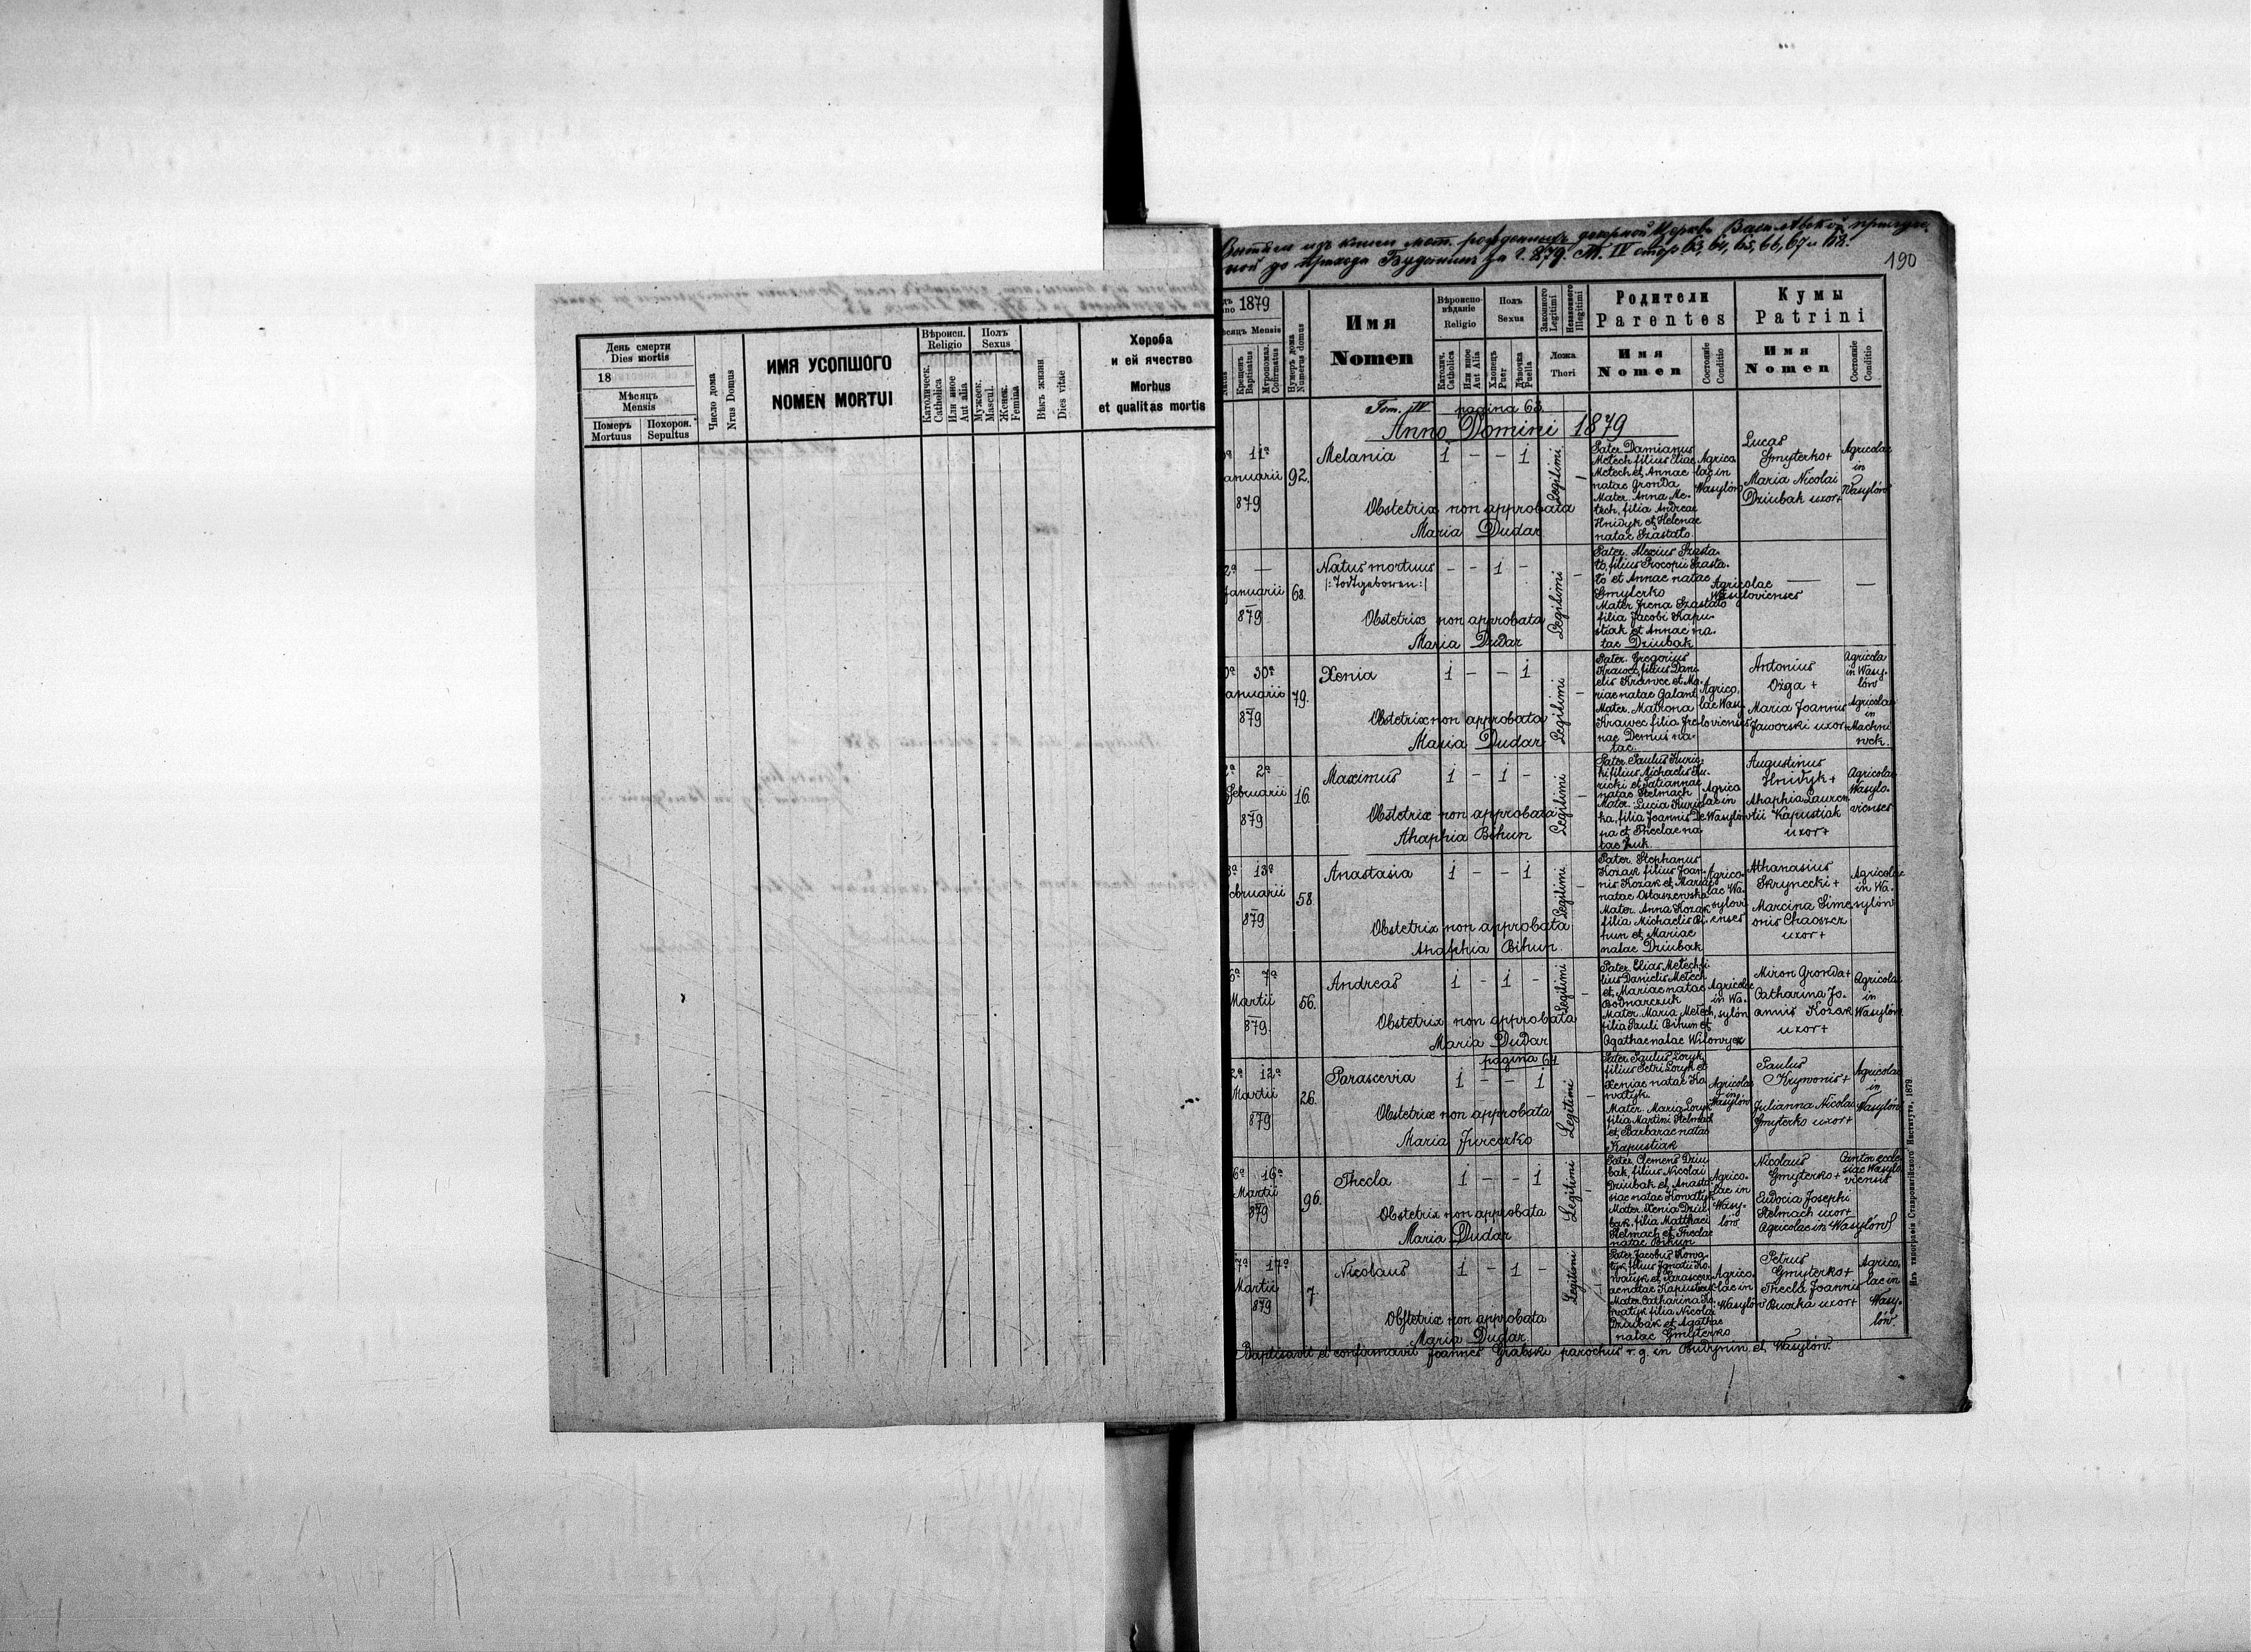 День смерти
Dies mortis
18
Мѣсяцъ
Mensis
Померъ
Mortuus
Похорон.
Sepultus
Число дома
Nrus Domus
ИМЯ УСОПШОГО
NOMEN MORTUI
Вѣроисп.
Religio
Католическ.
Catholica
Или иное
Aut alia
Полъ
Sexus
Мужеск.
Mascul.
Женск.
Femina
Вѣкъ жизни
Dies vitae
Хороба
и ей ячество
Morbus
et qualitas mortis
190
1879
Mensis
Крещенъ
Baptisatus
Муропомаз.
Confirmatus
Нумеръ дома
Numerus domus
Имя
Nomen
Вѣроиспо-
вѣданіе
Religio
Католич.
Catholica
Или иное
Aut Alia
Полъ
Sexus
Хлопецъ
Puer
Дѣвочка
Puella
Законного
Legitimi
Незаконного
Illegitimi
Ложа
Thori
Родители
Parentes
Имя
Nomen
Состояніе
Conditio
Кумы
Patrini
Имя
Nomen
Состояніе
Conditio
Tom. IV pagina 63.
Anno Domini 1879
11ª
anuarii
879
92.
Melania
1 - - 1
Legitimi
Obstetrix non approbata
Maria Dudar
Pater Damianus
Metech filius Eliae
Metech et Annae
natae Gronda
Mater Anna Me-
tech, filia Andreae
Hnidyk et Helenae
natae Szastało
Agrico
lae in
Wasylów
Lucas
Gmyterko+
Maria Nicolai
Dziubak uxor+
Agricolae
in
Wasylów
2ª —
Januarii
879
68.
Natus mortuus
/:Todtgeboren:/
- - 1 -
Legitimi
Obstetrix non approbata
Maria Dudar
Pater Alexius Szasta-
ło, filius Procopii Szasta-
ło et Annae natae
Gmyterko
Mater Irena Szastało
filia Jacobi Kapu-
stiak et Annae na-
tae Dziubak
Agricolae
Wasylovienses
— —
30ª
anuarii
879
79.
Xenia
1 - - 1
Legitimi
Obstetrix non approbata
Maria Dudar
Pater Gregorius
Krawec, filius Dani-
elis Krawec et Ma-
riae natae Galant
Mater Matrona
Krawec filia
nae Demus na-
tae
Agrico-
lae Wasy-
lovienses
Antonius
Ożga +
Maria Joannis
Jaworski uxor+
Agricola
in Wasy-
lów
Agricolae
in
Machni
wek.
2ª 2ª
Februarii
879
16.
Maximus
1 - 1 -
Legitimi
Obstetrix non approbata
Ahaphia Bihun
Pater Paulus Kuric-
ki filius Michaelis Ku-
ricki et Tatiannae
natae Stelmach
Mater Lucia Kuric
ka, filia Joannis De
pa et Theclae na
tae Żuk.
Agrico
lae in
Wasylów
Augustinus
Hnidyk +
Ahaphia Lauren
tii Kapustiak
uxor+
Agricolae
Wasylo-
vienses
13ª
ebruarii
879
58.
Anastasia
1 - - 1
Legitimi
Obstetrix non approbata
Ahaphia Bihun.
Pater Stephanus
Kozak filius Joan-
nis Kozak et Mariae
natae Ostaszewska
Mater Anna Kozak
filia Michaelis Bi-
hun et Mariae
natae Dziubak
Agrico-
lae Wa-
sylovi
enses
Athanasius
Skrynecki +
Marcina Sime
onis Chaoszcz
uxor+
Agricolae
in Wa-
sylów
6ª 7ª
Martii
879
56.
Andreas
1 - 1 -
Legitimi
Obstetrix non approbata
Maria Dudar
Pater Elias Metech, fi
lius Danielis Metech
et Mariae natae
Bodnarczuk
Mater Maria Metech,
filia Pauli Bihun et
Agathae natae
Agricolae
in Wa-
sylów
Miron Gronda+
Catharina Jo-
annis Kozak
uxor+
Agricolae
in
Wasylów
pagina 64
2ª 12ª
Martii
879
26.
Parascevia
1 - - 1
Legitimi
Obstetrix non approbata
Maria Jureczko
Pater Paulus Loryk,
filius Petri Loryk et
Xeniae natae Ko
watyk.
Mater Maria Loryk
filia Martini Stelmach
et Barbarae natae
Kapustiak
Agricolae
in
Wasylów
Paulus
Krywonis+
Julianna Nicolai
Gmyterko uxor+
Agricolae
in
Wasylów
6ª 16ª
Martii
879
96.
Thecla
1 - - 1
Legitimi
Obstetrix non approbata
Maria Dudar
Pater Clemens Dziu
bak, filius Nicolai
Dziubak et Anasta-
siae natae Kowatyk
Mater Xenia Dziu
bak, filia Matthaei
Stelmach et Theclae
natae Bihun
Agrico-
lae in
Wasy-
lów
Nicolaus
Gmyterko +
Eudocia Josephi
Stelmach uxor+
Agricolae in Wasylów
Cantor eccle
siae Wasylo
viensis
7ª 17ª
Martii
879
7.
Nicolaus
1 - 1 -
Legitimi
Obstetrix non approbata
Maria Dudar
Pater Jacobus Kowa-
tyk, filius Ignatii Ko-
watyk et Parascevi-
ae natae Kapustiak
Mater Catharina Ko-
watyk filia Nicolai
Dziubak et Agathae
natae Gmyterko
Agrico-
lae in
Wasylów
Petrus
Gmyterko+
Thecla Joannis
uxor+
Agrico-
lae in
Wasy-
lów
Baptisavit et confirmavit Joannes Grabski parochus r. g. in Budynin et Wasylów.
Изъ типографіи Ставропигійского Института, 1879.